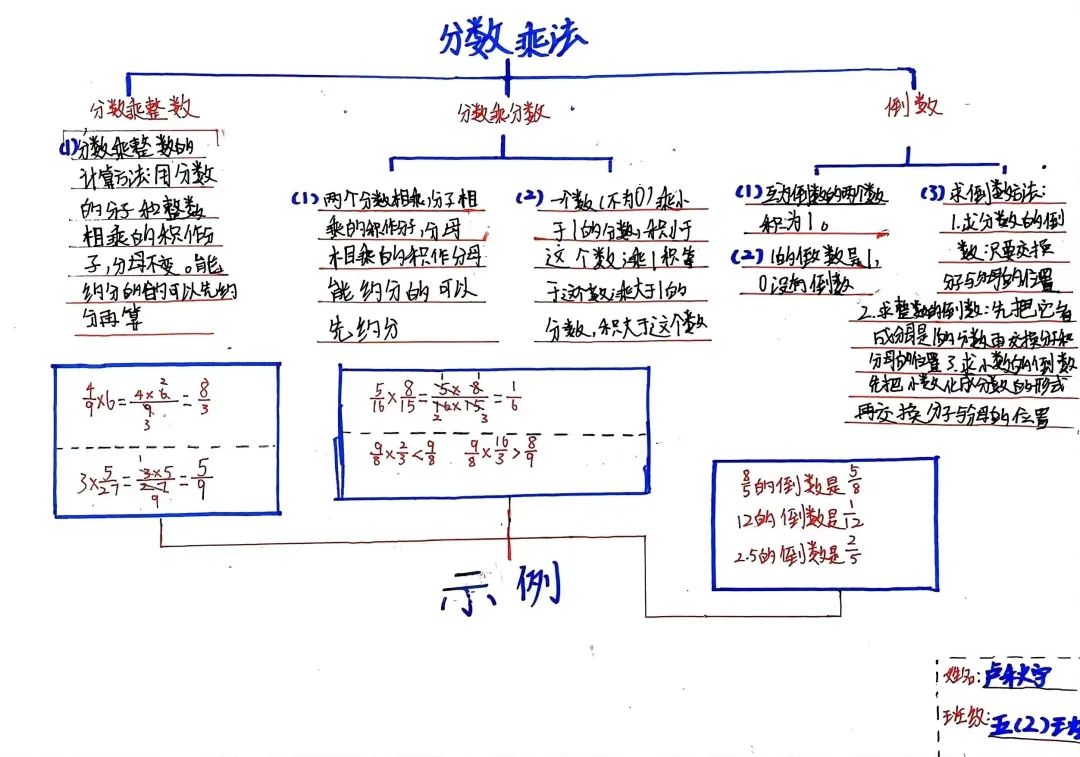 分数乘法
分数乘整数
(1)分数乘整数的
计算方法:用分数
的分子和整数
相乘的积作分
子,分母不变。能
约分的的可以先约
分再算
4/9×6=4×6/9=8/3
2
3
3×5/27=3×5/27=5/9
1
9
分数乘分数
(1)两个分数相乘,分子相
乘的积作分子,分母
相乘的积作分母
能约分的可以
先约分
(2)一个数(不为0)乘小
于1的分数,积小于
这个数;乘1积等
于这个数;乘大于1的
分数,积大于这个数
5/16×8/15=5×8/16×15=1/6
1 1
2 3
9/8×2/3<9/8 9/8×16/3>8/9
倒数
(1)互为倒数的两个数
积为1。
(2)1的倒数是1,
0没有倒数
(3)求倒数方法:
1.求分数的倒
数:只要交换
分子与分母的位置
2.求整数的倒数:先把它看
成分母是1的分数再交换分子和
分母的位置 3.求小数的倒数
先把小数化成分数的形式
再交换分子与分母的位置
8/5的倒数是5/8
12的倒数是1/12
2.5的倒数是2/5
示例
姓名:卢
班级:五(2)班